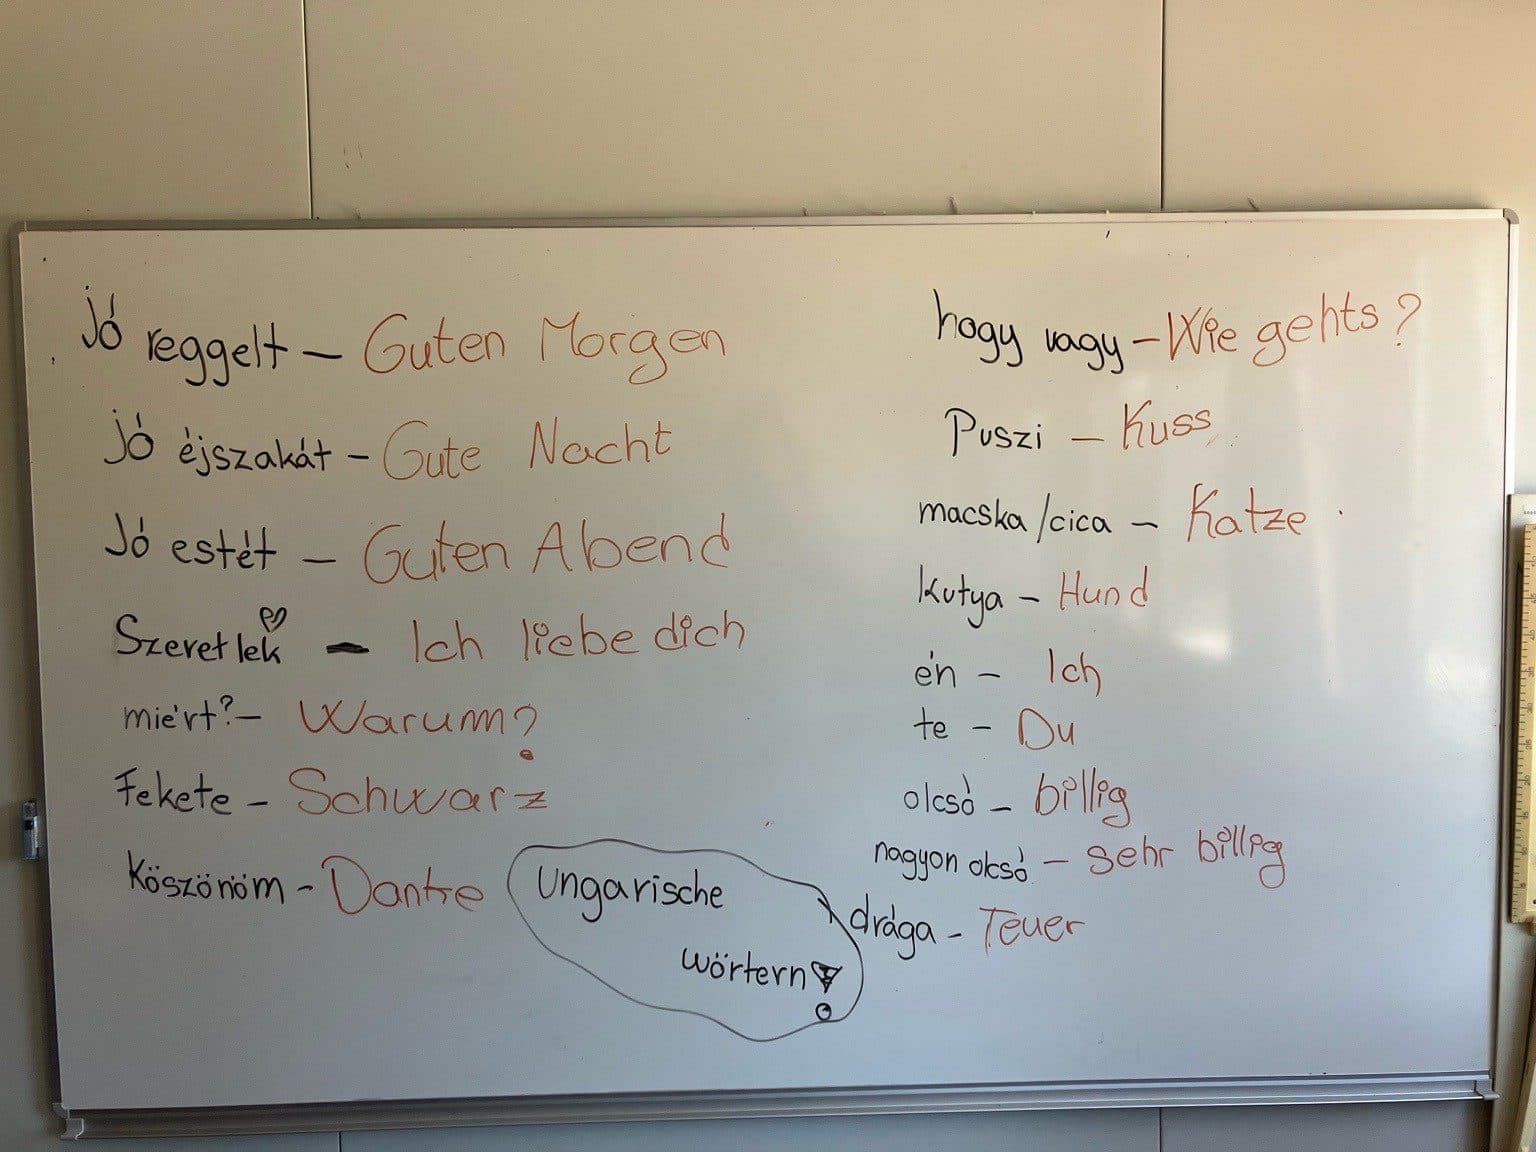 Jó reggelt – Guten Morgen
Jó éjszakát – Gute Nacht
Jó estét – Guten Abend
Szeretlek – Ich liebe dich
miért? – Warum?
Fekete – Schwarz
Köszönöm – Danke
Ungarische
wörtern!
hogy vagy – Wie gehts?
Puszi – Kuss
macska/cica – Katze
Kutya – Hund
én – Ich
te – Du
olcsó – billig
nagyon olcsó – sehr billig
drága – Teuer